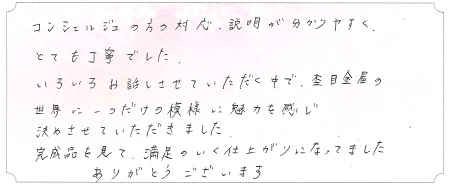 コンシェルジュの方の対応、説明が分かりやすく、
とても丁寧でした。
いろいろお話しさせていただく中で、杢目金屋の
世界に一つだけの模様に魅力を感じ
決めさせていただきました。
完成品を見て、満足のいく仕上がりになってました
ありがとうございます